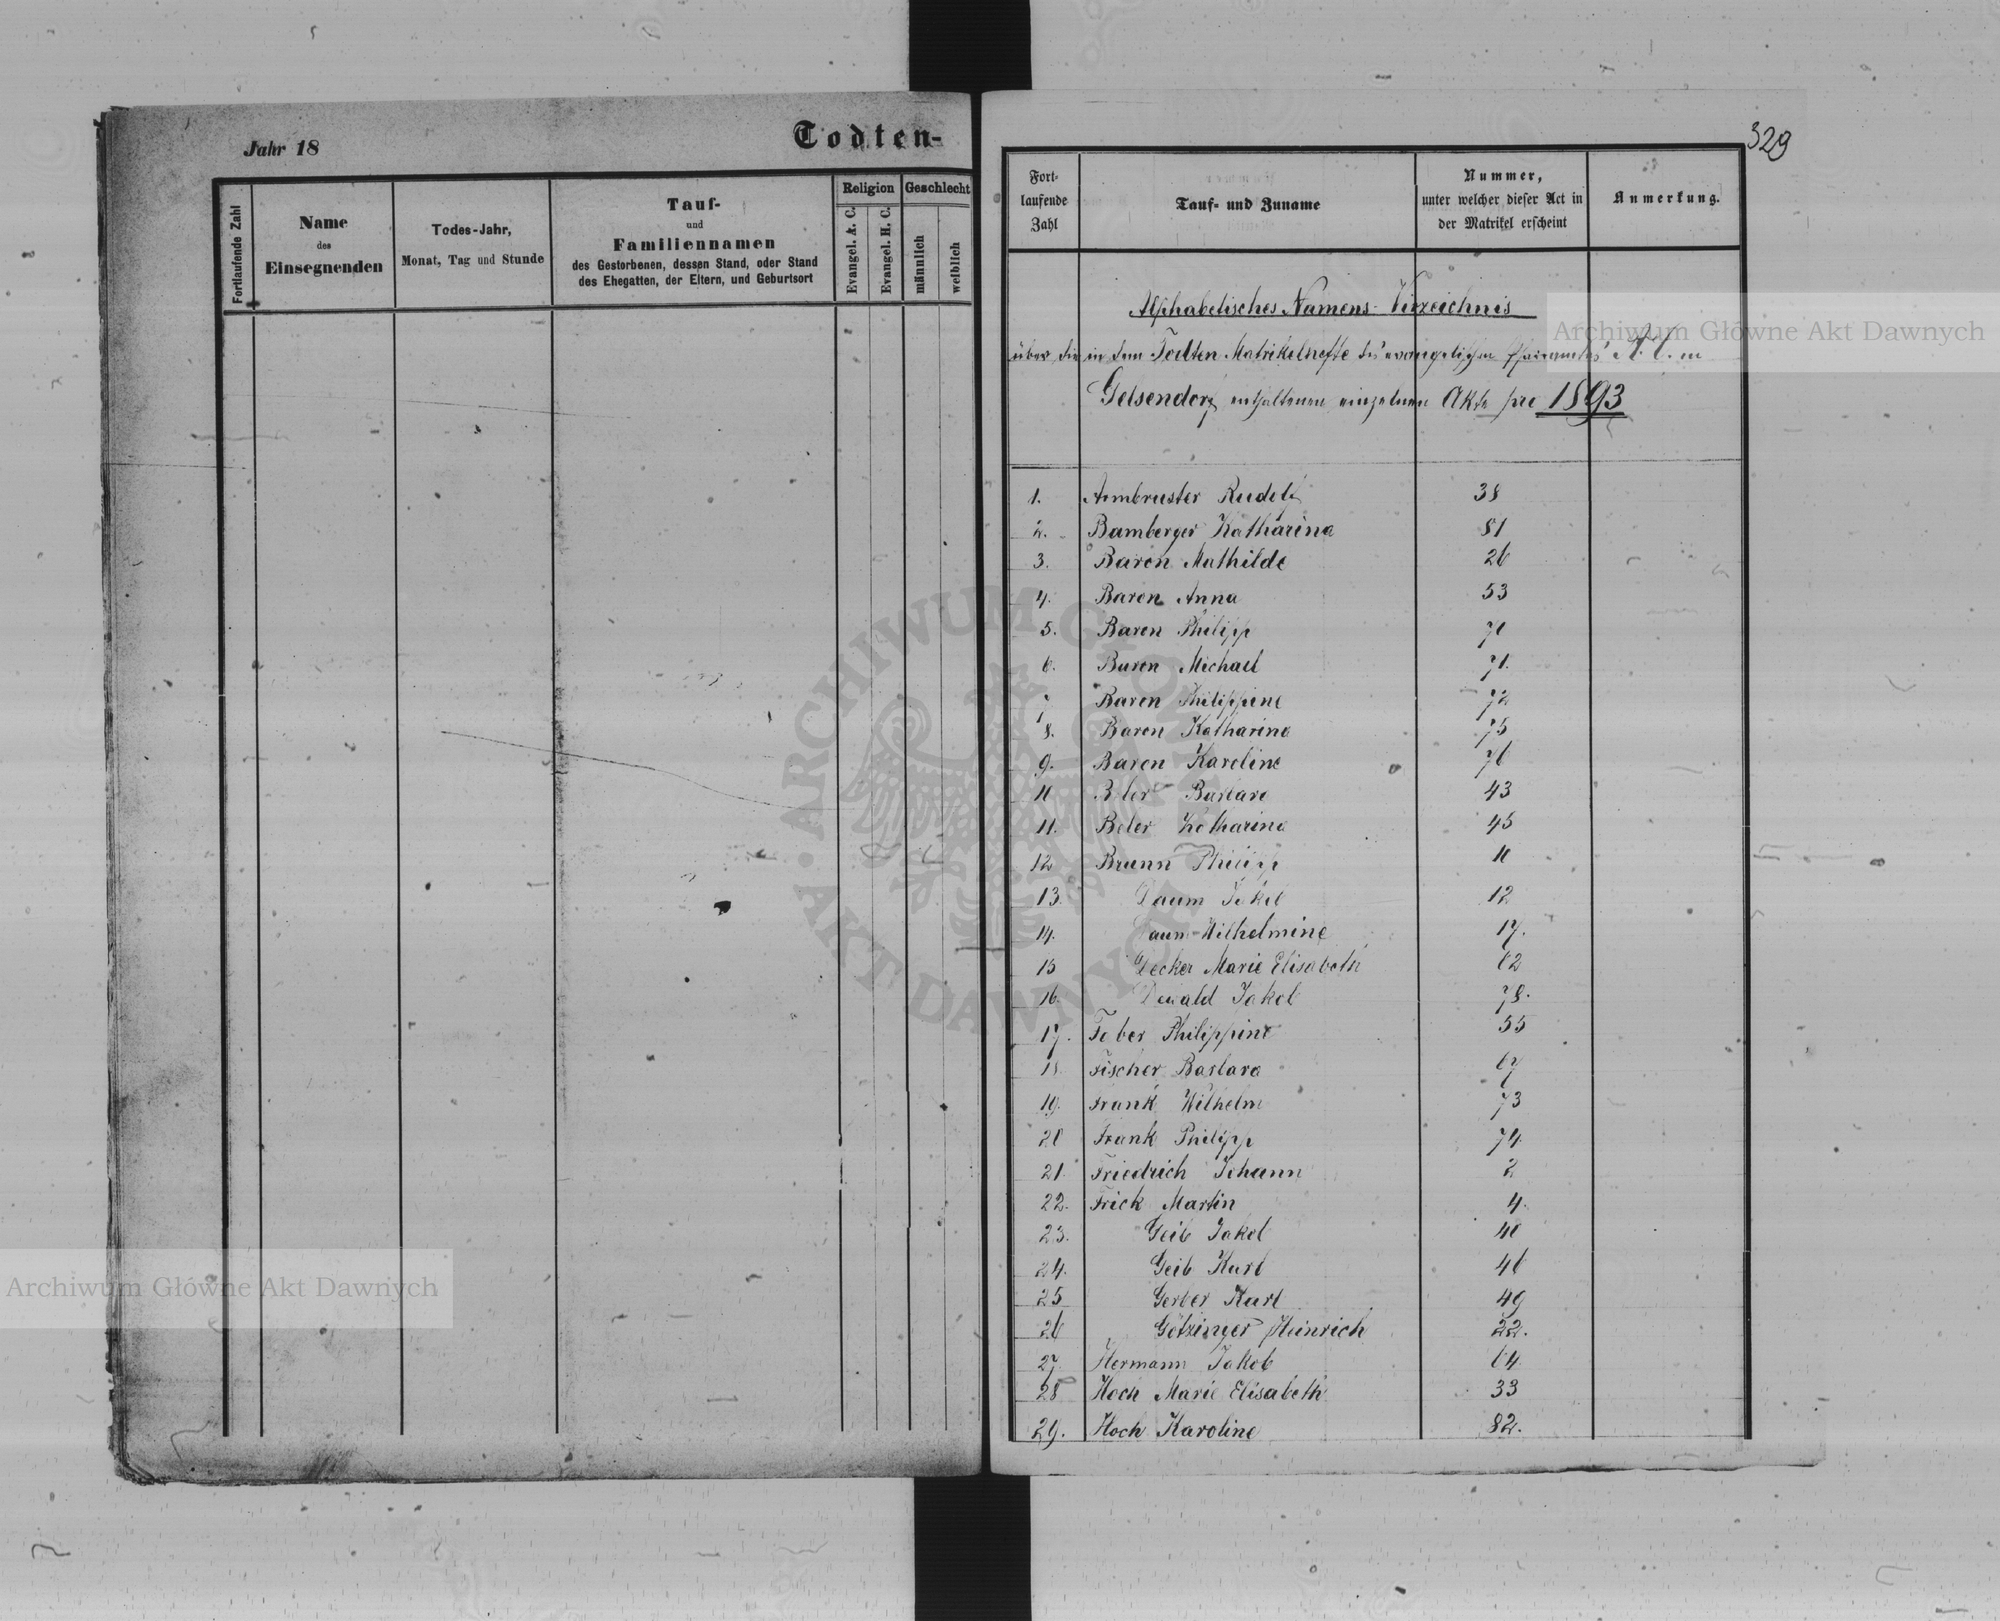 Jahr 18
Todten-
Fortlaufende Zahl
Name
des
Einsegnenden
Todes-Jahr,
Monat, Tag und Stunde
Tauf-
und
Familiennamen
des Gestorbenen, dessen Stand, oder Stand
des Ehegatten, der Eltern, und Geburtsort
Religion
Evangel. A. C.
Evangel. H. C.
Geschlecht
männlich
weiblich
329
Fort-
laufende
Zahl
Tauf- und Zuname
Nummer,
unter welcher dieser Act in
der Matrikel erscheint
Anmerkung.
Alphabetisches Namens-Verzeichnis
über die in dem Todten Matrikelhefte des evangelischen Pfarramtes A. C. in
Gelsendorf enthaltenen einzelnen Akte pro 1893
1. Armbruster Rudolf 38
2. Bamberger Katharina 81
3. Baron Mathilde 26
4. Baron Anna 53
5. Baron Philipp 70
6. Baron Michael 71.
7 Baron Philippine 72
8. Baron Katharina 75
9. Baron Karoline 76
10 Barbara 43
11. Katharina 45
12 Brunn Philipp 10
13 Daum Jakob 12
14. Daum Wilhelmine 17.
15 Decker Marie Elisabeth 62
16 Dewald Jakob 78.
17. Faber Philippine 55
18. Fischer Barbara 67
19. Frank Wilhelm 73
20 Frank Philipp 74
21. Friedrich Johann 2
22. Frick Martin 4.
23. Geib Jakob 40
24. Geib Karl 46
25 Gerber Karl 49
26 Götzinger Heinrich 22.
27. Hermann Jakob 64
28 Hoch Marie Elisabeth 33
29. Hoch Karoline 82.
ARCHIWUM GŁÓWNE AKT DAWNYCH
Archiwum Główne Akt Dawnych
Archiwum Główne Akt Dawnych